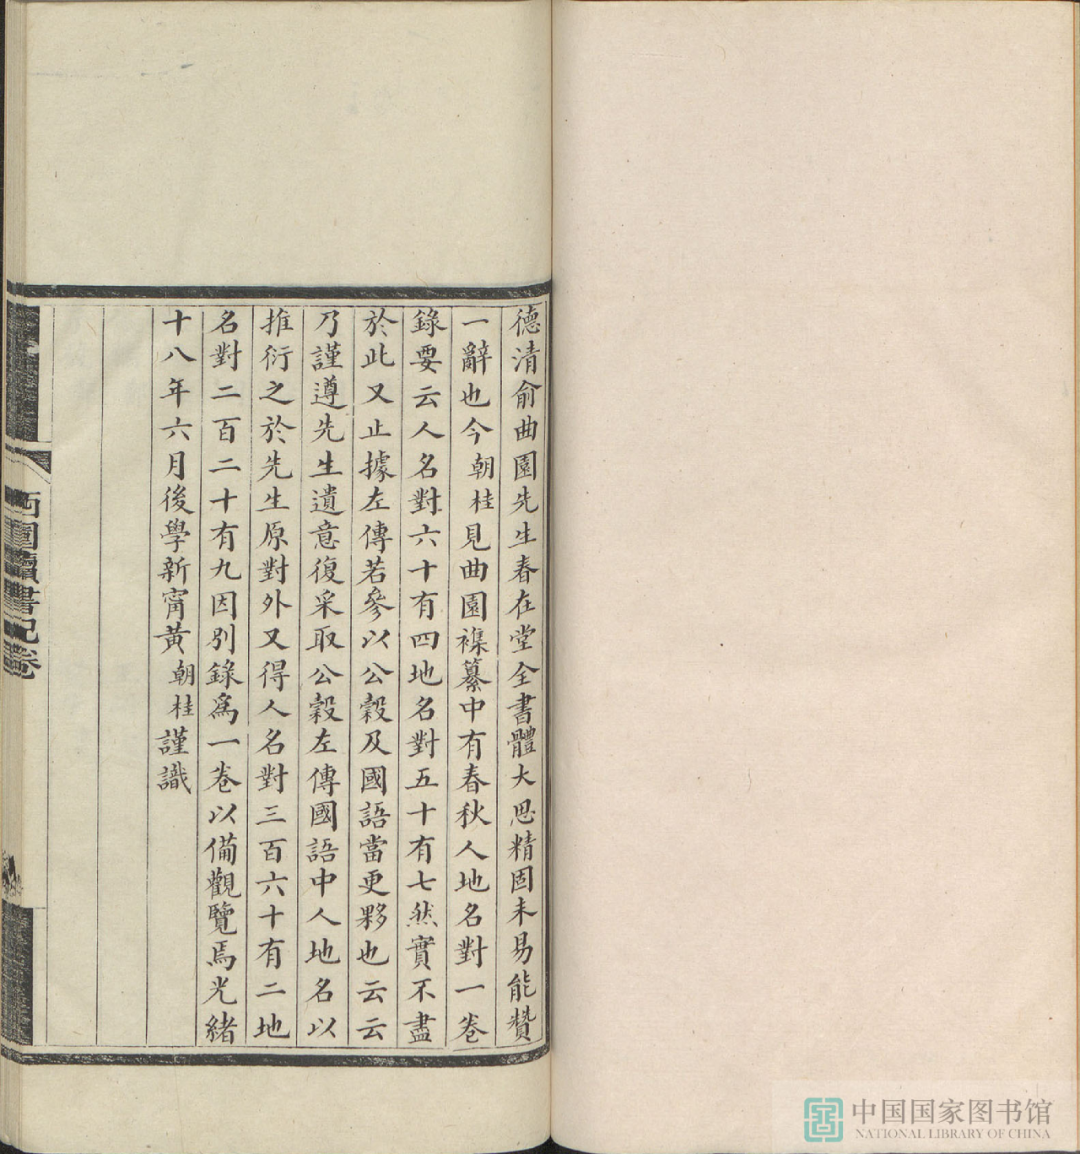 德清俞曲園先生春在堂全書體大思精固未易能贊
一辭也今朝桂見曲園襍纂中有春秋人地名對一卷
錄要云人名對六十有四地名對五十有七然實不盡
於此又止據左傳若參以公穀及國語當更夥也云云
乃謹遵先生遺意復采取公穀左傳國語中人地名以
推衍之於先生原對外又得人名對三百六十有二地
名對二百二十有九因別錄爲一卷以備觀覽焉光緒
十八年六月後學新甯黃朝桂謹識
西園讀書記卷
中国国家图书馆
NATIONAL LIBRARY OF CHINA